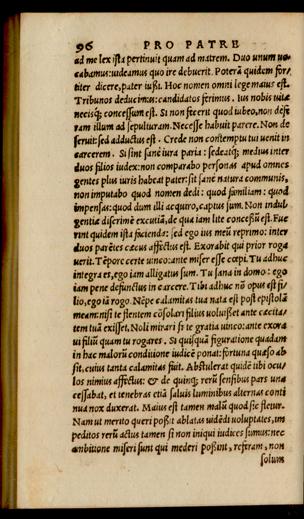 96 PRO PATRE
ad me lex ista pertinuit quam ad matrem. Duo unum uo-
cabamus: uideamus quo ire debuerit. Poterā quidem for-
titer dicere, pater iußi. Hoc nomen omni lege maius est.
Tribunos deducimus: candidatos ferimus. Ius nobis uitæ
necisq; concessum est. Si non fecerit quod iubeo, non dese
ram illum ad sepulturam. Necesse habuit parere. Non de
seruit: sed adductus est. Crede non contemptu tui uenit in
carcerem. Si sint sanè iura paria: sedeatq; medius inter
duos filios iudex: non comparabo personas apud omnes
gentes plus iuris habeat pater: sit sanè natura communis,
non imputabo quod nomen dedi: quod familiam: quod
impensas: quod dum illi acquiro, captus sum. Non indul-
gentiæ discrimē excutiā, de qua iam lite concessū est. Fue
rint quidem ista facienda: sed ego ius meū reprimo: inter
duos parētes cæcus affectus est. Exorabit qui prior roga
uerit. Tēporc certe uinco: ante miser esse cœpi. Tu adhuc
integra es, ego iam alligatus sum. Tu sana in domo: ego
iam pene defunctus in carcere. Tibi adhuc nō opus est fi-
lio, ego iā rogo. Nēpe calamitas tua nata est post epistolā
meam: nisi te flentem cōsolari filius uoluisset ante cæcita-
tem tuā exisset. Noli mirari si te gratia uinco: ante exora
ui filiū quam tu rogares. Si quisquā figuratione quadam
in hac malorū conditione iudicē ponat: fortuna quæso ab
sit, cuius tanta calamitas fuit. Abstulerat quidē tibi ocu-
los nimius affectus: & de quinq; rerū sensibus pars una
ceßabat, et tenebras etiā saluis luminibus alternas conti
nua nox duxerat. Maius est tamen malū quod sic fletur.
Nam ut merito queri poßit ablatas uidēdi uoluptates, im
peditos rerū actus tamen si non iniqui iudices sumus: nec
ambitione miseri sunt qui mederi poßint, referam, non
solum